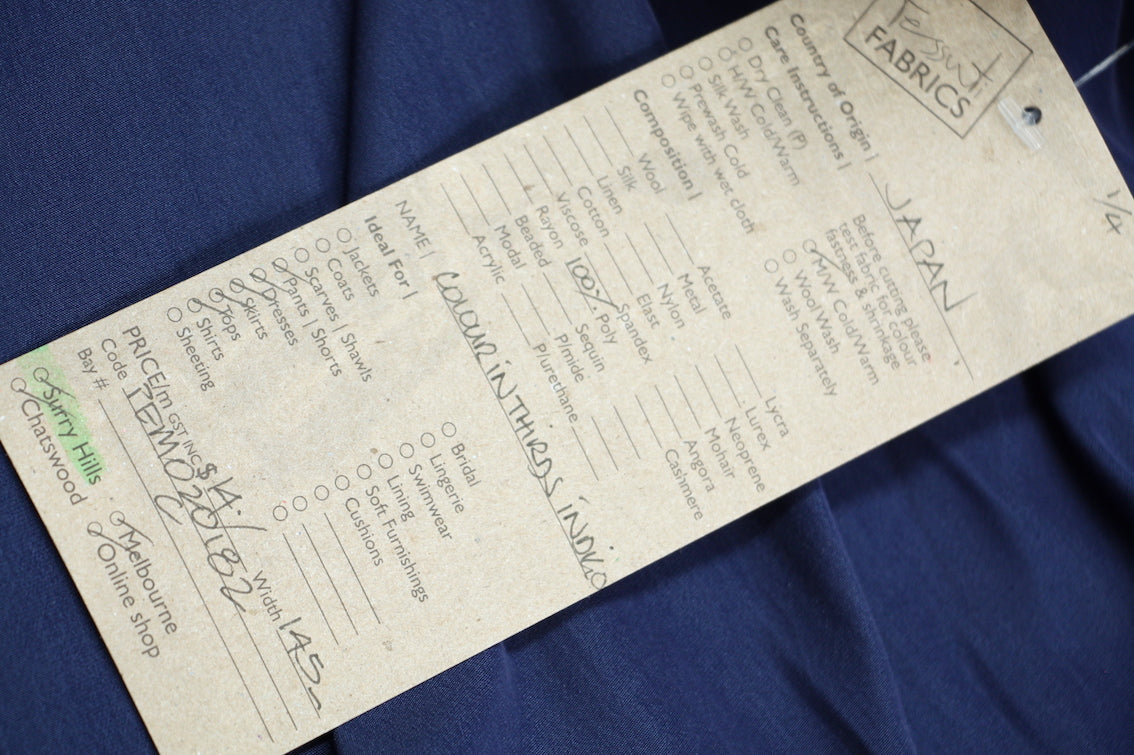 Tessuti
FABRICS
1/4
Country of Origin | JAPAN
Care Instructions |
Before cutting please
test fabric for colour
fastness & shrinkage
Dry Clean (P)
H/W Cold/Warm
Silk Wash
Prewash Cold
Wipe with wet cloth
M/W Cold/Warm
Wool Wash
Wash Separately
Composition |
Wool
Silk
Linen
Cotton
Viscose
Rayon
Beaded
Modal
Acrylic
Acetate
Metal
Nylon
Elast
Spandex
100% Poly
Sequin
P/mide
P/urethane
Lycra
Lurex
Neoprene
Mohair
Angora
Cashmere
NAME | COLOUR IN THIRDS INDIGO
Ideal For |
Jackets
Coats
Scarves | Shawls
Pants | Shorts
Dresses
Skirts
Tops
Shirts
Sheeting
Bridal
Lingerie
Swimwear
Lining
Soft Furnishings
Cushions
PRICE/m GST INC $14.
Width 145
Code
Bay #
Surry Hills
Chatswood
Melbourne
Online shop